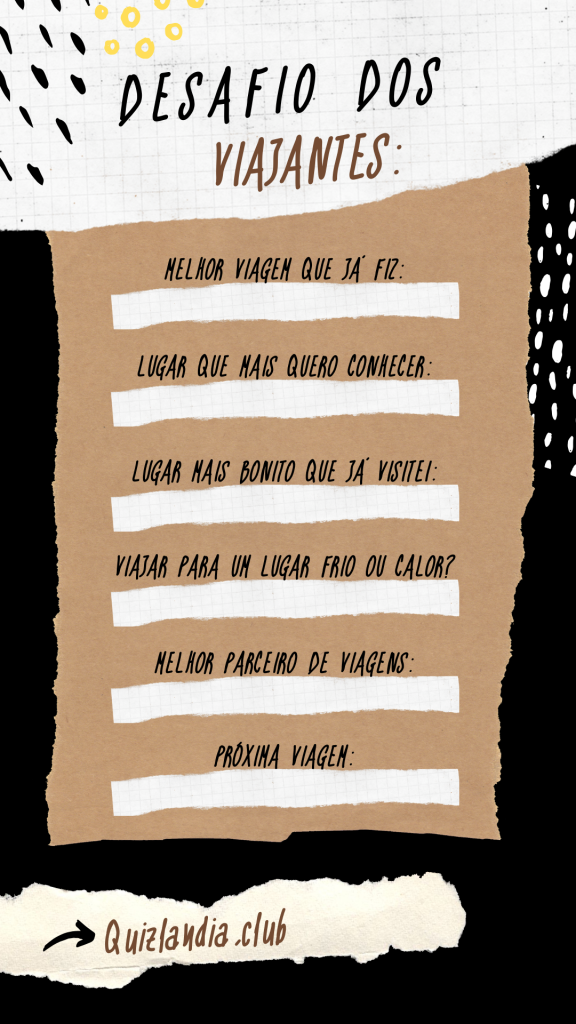 DESAFIO DOS
VIAJANTES:
MELHOR VIAGEM QUE JÁ FIZ:
LUGAR QUE MAIS QUERO CONHECER:
LUGAR MAIS BONITO QUE JÁ VISITEI:
VIAJAR PARA UM LUGAR FRIO OU CALOR?
MELHOR PARCEIRO DE VIAGENS:
PRÓXIMA VIAGEM:
Quizlandia.club